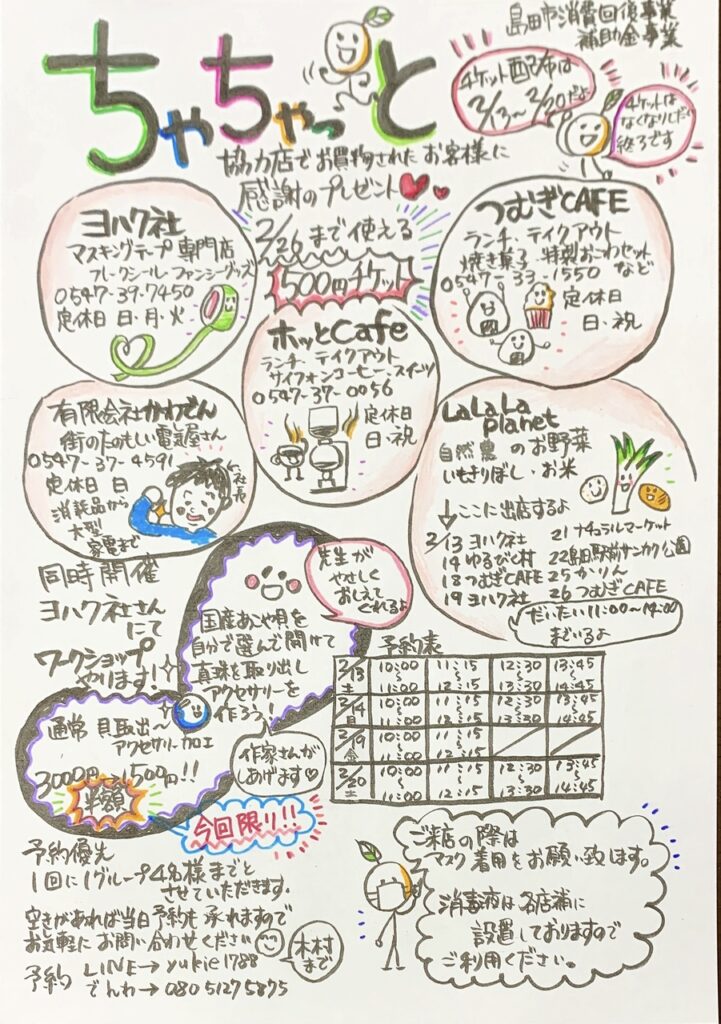 島田市消費回復事業
補助金事業
ちゃちゃっと
チケット配布は
2/13～2/20だよ
チケットは
なくなりしだい
終了です
協力店でお買物されたお客様に
感謝のプレゼント
2/26まで使える
500円チケット
ヨハク社
マスキングテープ専門店
フレークシール・ファンシーグッズ
0547-39-7450
定休日 日・月・火
つむぎCAFE
ランチ・テイクアウト
焼き菓子 特製おこわセット
など
0547-33-1550
定休日
日・祝
ホッとCafe
ランチ・テイクアウト
サイフォンコーヒー・スイーツ
0547-37-0056
定休日
日・祝
有限会社かわでん
街のたのもしい電気屋さん
0547-37-4591
定休日 日
消耗品から
大型
家電まで
社長
LaLaLa
planet
自然農のお野菜
いもきりぼし・お米
ここに出店するよ
2/13 ヨハク社
14 ゆるびく村
18 つむぎCAFE
19 ヨハク社
21 ナチュラルマーケット
22 島田駅前サンカク公園
25 かりん
26 つむぎCAFE
だいたい11:00～14:00
までいるよ
同時開催
ヨハク社さん
にて
ワークショップ
やります!
先生が
やさしく
おしえて
くれるよ
国産あこや貝を
自分で選んで開けて
真珠を取り出し
アクセサリーを
作ろう!
通常 貝取出～
アクセサリー加工
3000円→1500円!!
半額
作家さんが
しあげます♡
今回限り!!
予約表
2/13 土 10:00～11:00 11:15～12:15 12:30～13:30 13:45～14:45
2/14 日 10:00～11:00 11:15～12:15 12:30～13:30 13:45～14:45
2/19 金 10:00～11:00 11:15～12:15
2/20 土 10:00～11:00 11:15～12:15 12:30～13:30 13:45～14:45
予約優先
1回に1グループ4名様までと
させていただきます.
空きがあれば当日予約も承れますので
お気軽にお問い合わせください
木村
まで
予約 LINE→yukie1788
でんわ→080 5127 5875
ご来店の際は
マスク着用をお願い致します。
消毒液は各店補に
設置しておりますので
ご利用ください。